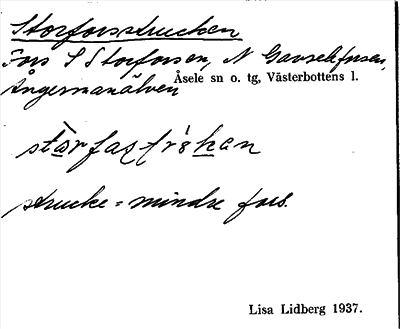 Storforsstrucken
Fors S Storforsen, N Gavseleforsen,
Åsele sn o. tg, Västerbottens l.
Ångermanälven
strucke = mindre fors.
Lisa Lidberg 1937.